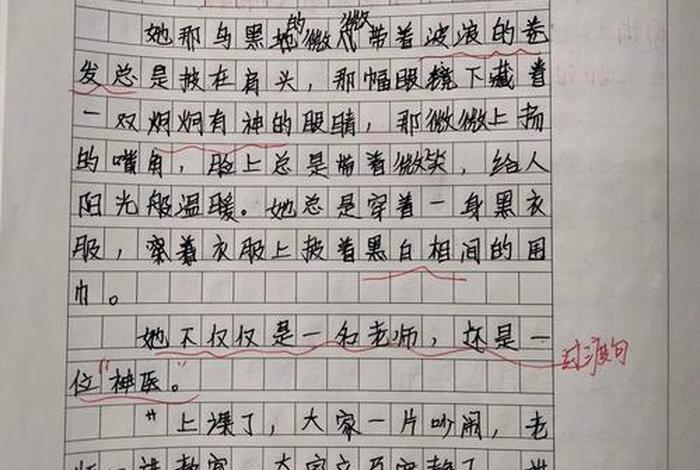 她那乌黑的微微带着波浪的卷
发总是披在肩头，那幅眼镜下藏着
一双炯炯有神的眼睛，那微微上扬
的嘴角，脸上总是带着微笑，给人
阳光般温暖。她总是穿着一身黑衣
服，穿着衣服上披着黑白相间的围
巾。
她不仅仅是一名老师，还是一
位"神医。"
过渡句
"上课了，大家一片吵闹，老